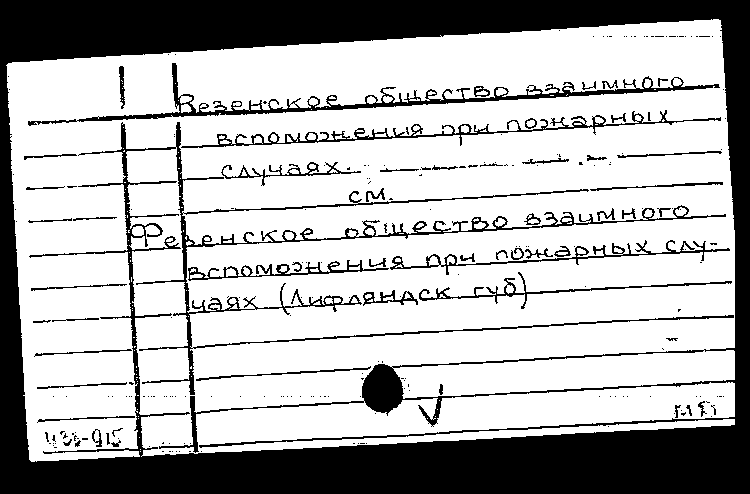 Везенское общество взаимного
вспоможения при пожарных
случаях.
см.
Фезенское общество взаимного
вспоможения при пожарных слу-
чаях (Лифляндск губ)